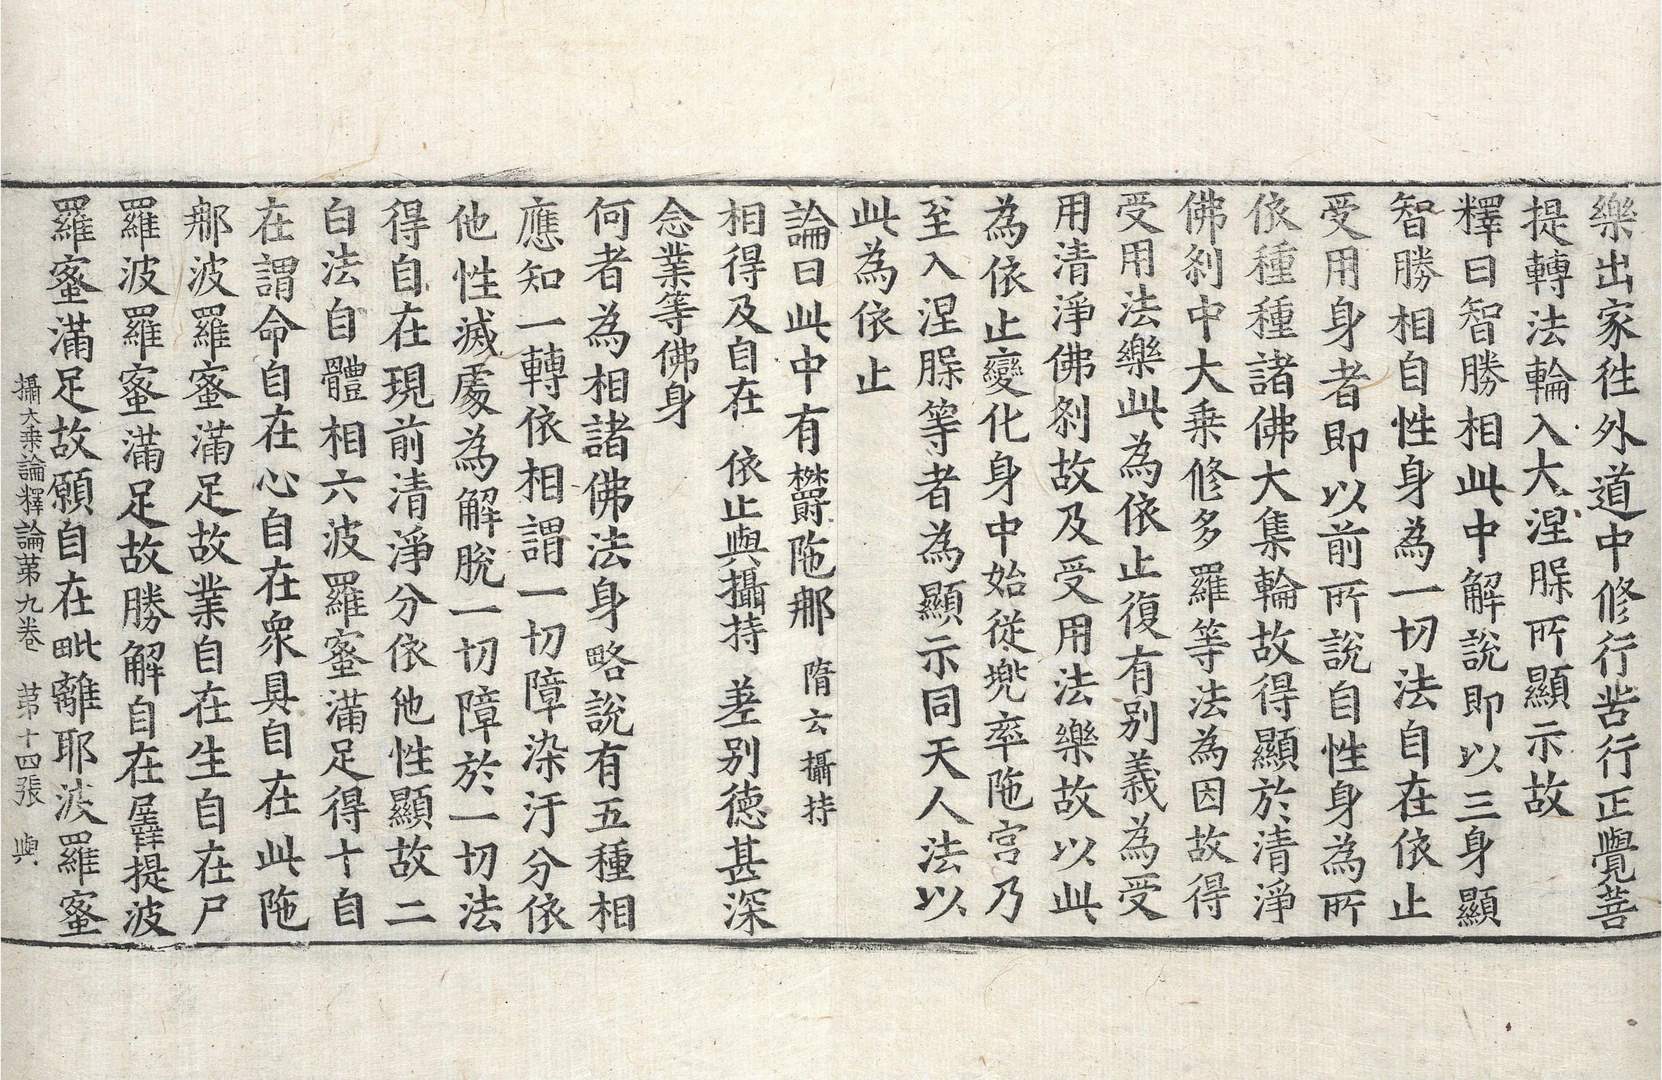 樂出家往外道中修行苦行正覺菩
提轉法輪入大涅槃所顯示故
釋曰智勝相此中解說即以三身顯
智勝相自性身為一切法自在依止
受用身者即以前所說自性身為所
依種種諸佛大集輪故得顯於清淨
佛剎中大乘修多羅等法為因故得
受用法樂此為依止復有別義為受
用清淨佛剎故及受用法樂故以此
為依止變化身中始從兜率陁宮乃
至入涅槃等者為顯示同天人法以
此為依止
論曰此中有欝陁那 隋云攝持
相得及自在 依止與攝持 差別德甚深
念業等佛身
何者為相諸佛法身略說有五種相
應知一轉依相謂一切障染汙分依
他性滅處為解脫一切障於一切法
得自在現前清淨分依他性顯故二
白法自體相六波羅蜜滿足得十自
在謂命自在心自在眾具自在此陁
那波羅蜜滿足故業自在生自在尸
羅波羅蜜滿足故勝解自在羼提波
羅蜜滿足故願自在毗離耶波羅蜜
攝大乘論釋論第九卷 第十四張 輿